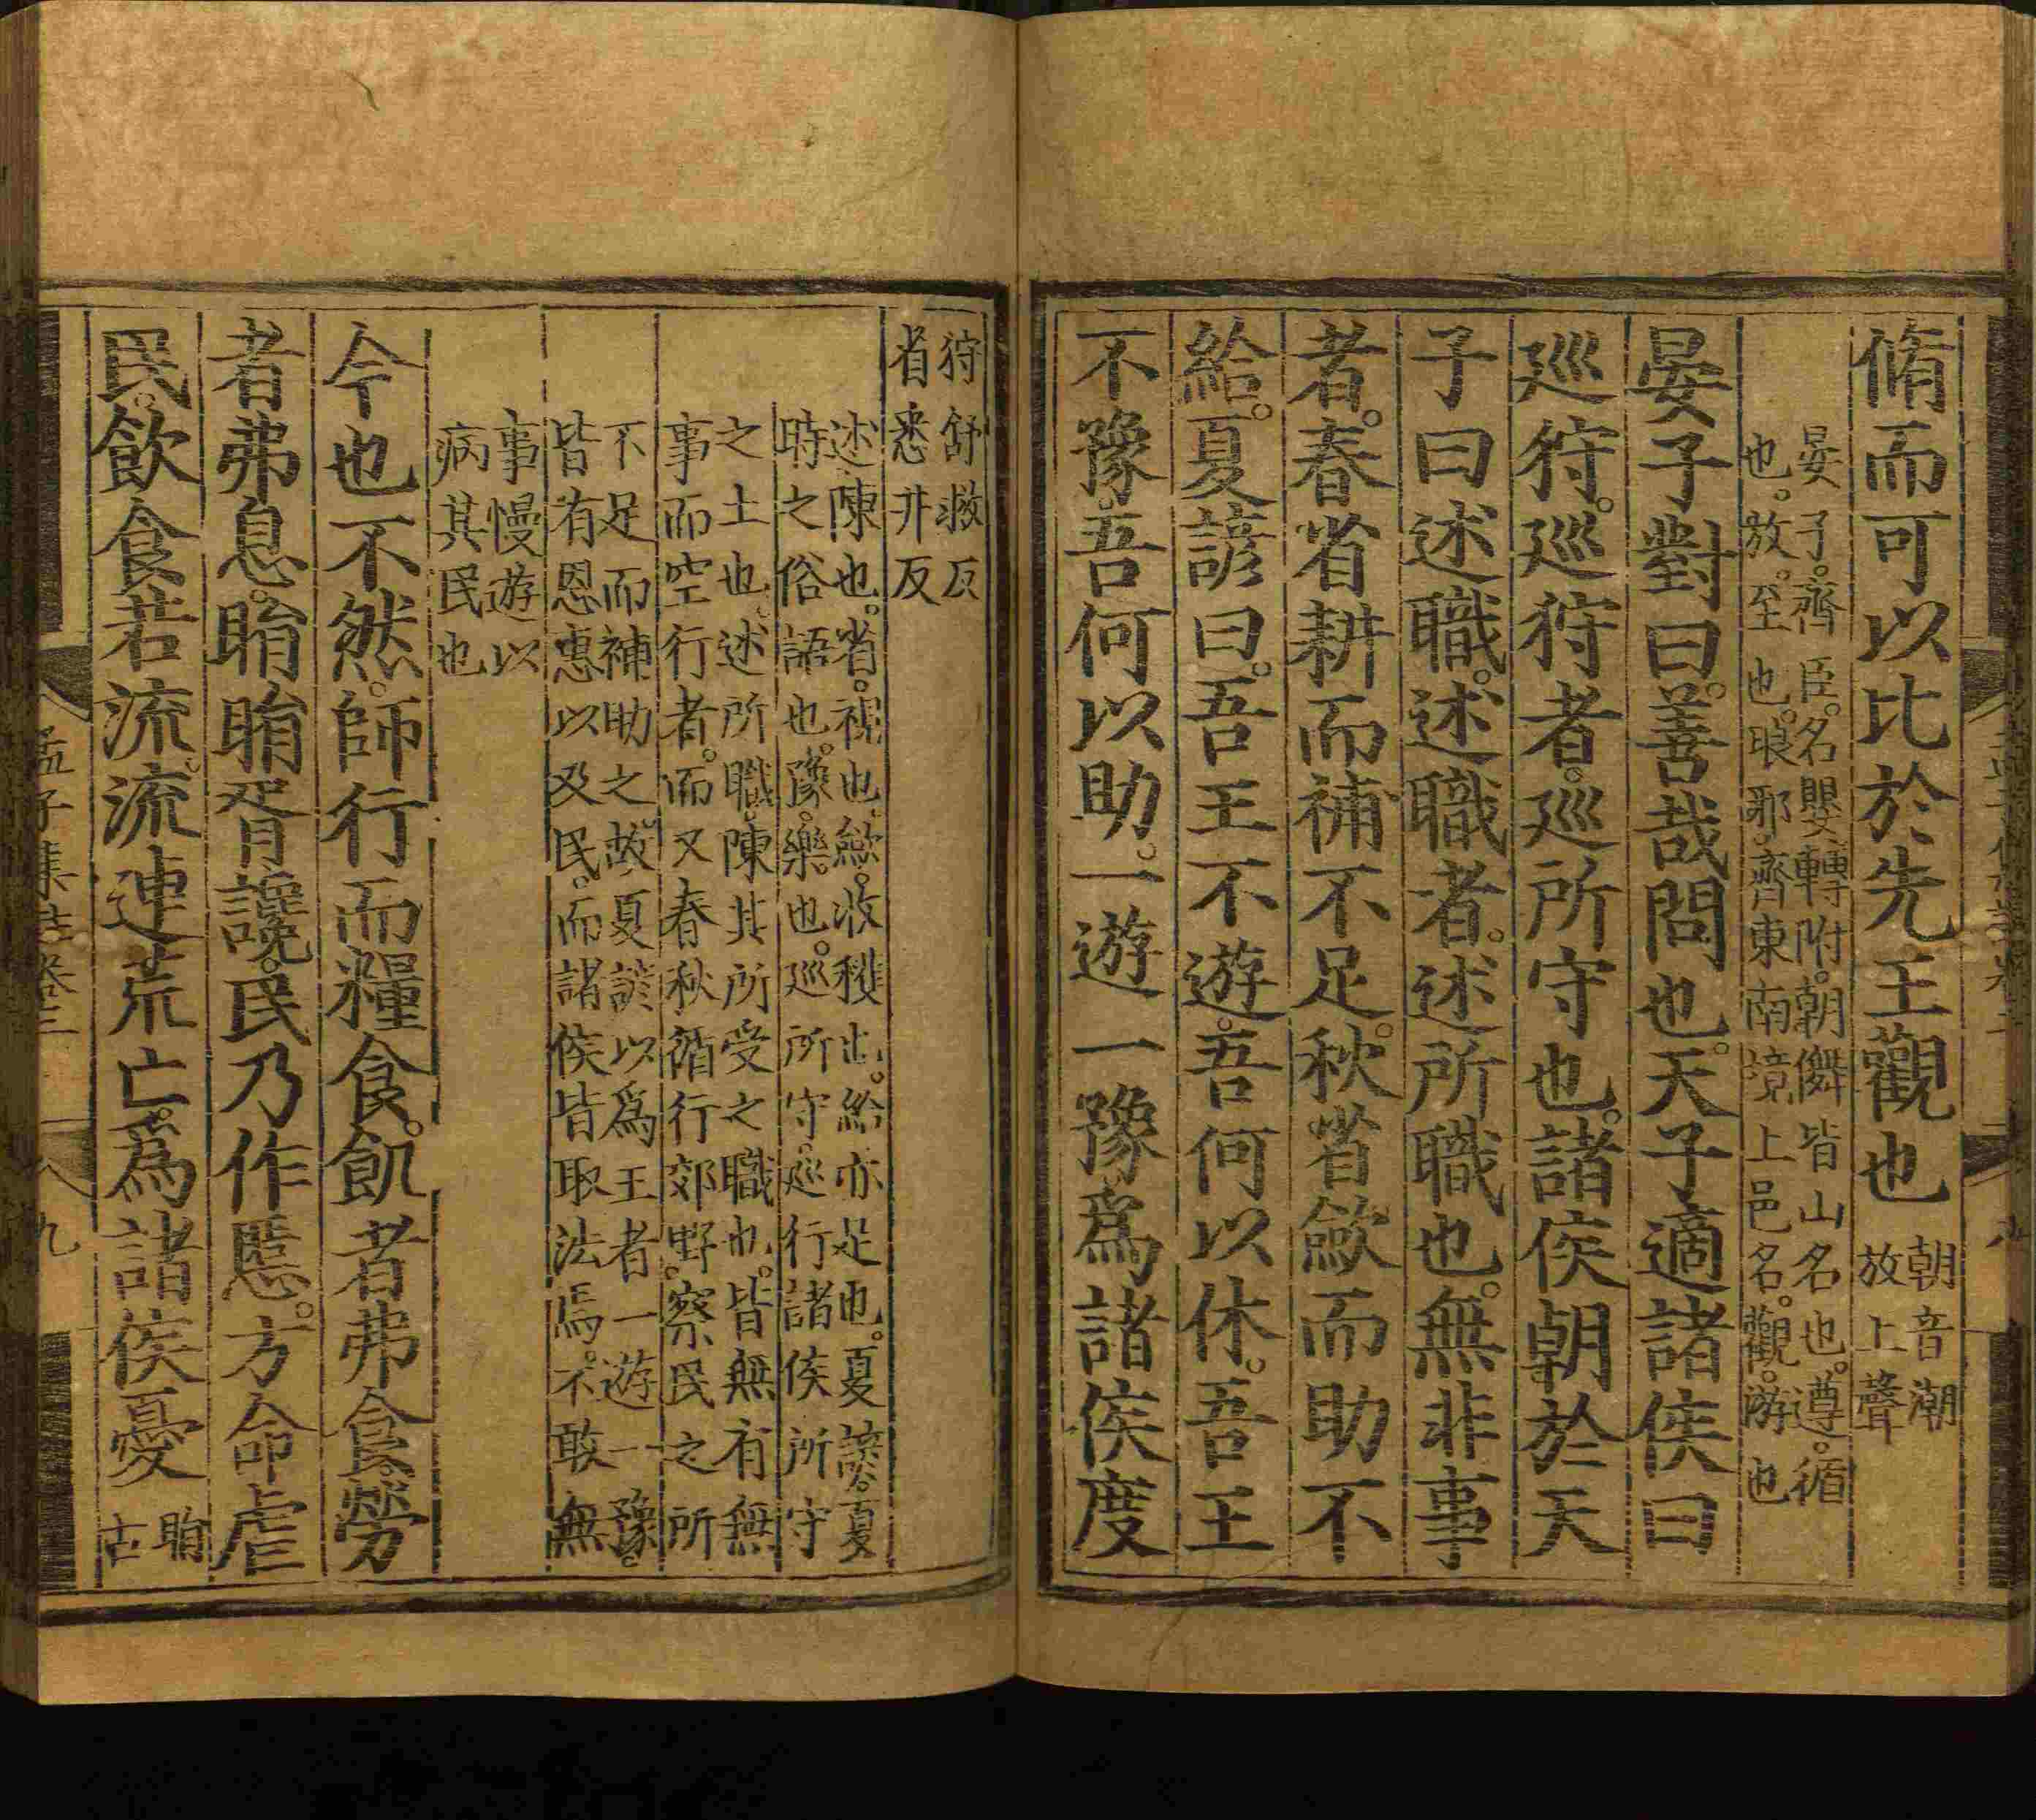 脩而可以比於先王觀也朝音潮
放上聲
晏子齊臣名嬰轉附朝儛皆山名也遵循
也放至也琅邪齊東南境上邑名觀游也
晏子對曰善哉問也天子適諸侯曰
巡狩巡狩者巡所守也諸侯朝於天
子曰述職述職者述所職也無非事
者春省耕而補不足秋省斂而助不
給夏諺曰吾王不遊吾何以休吾王
不豫吾何以助一遊一豫為諸侯度
狩舒救反
省悉井反
述陳也省視也斂收穫也給亦足也夏諺夏
時之俗語也豫樂也巡所守巡行諸侯所守
之土也述所職陳其所受之職也皆無有無
事而空行者而又春秋循行郊野察民之所
不足而補助之故夏諺以為王者一遊一豫
皆有恩惠以及民而諸侯皆取法焉不敢無
事慢遊以
病其民也
今也不然師行而糧食飢者弗食勞
者弗息睊睊胥讒民乃作慝方命虐
民飲食若流流連荒亡為諸侯憂睊
古
孟子集註卷二
九